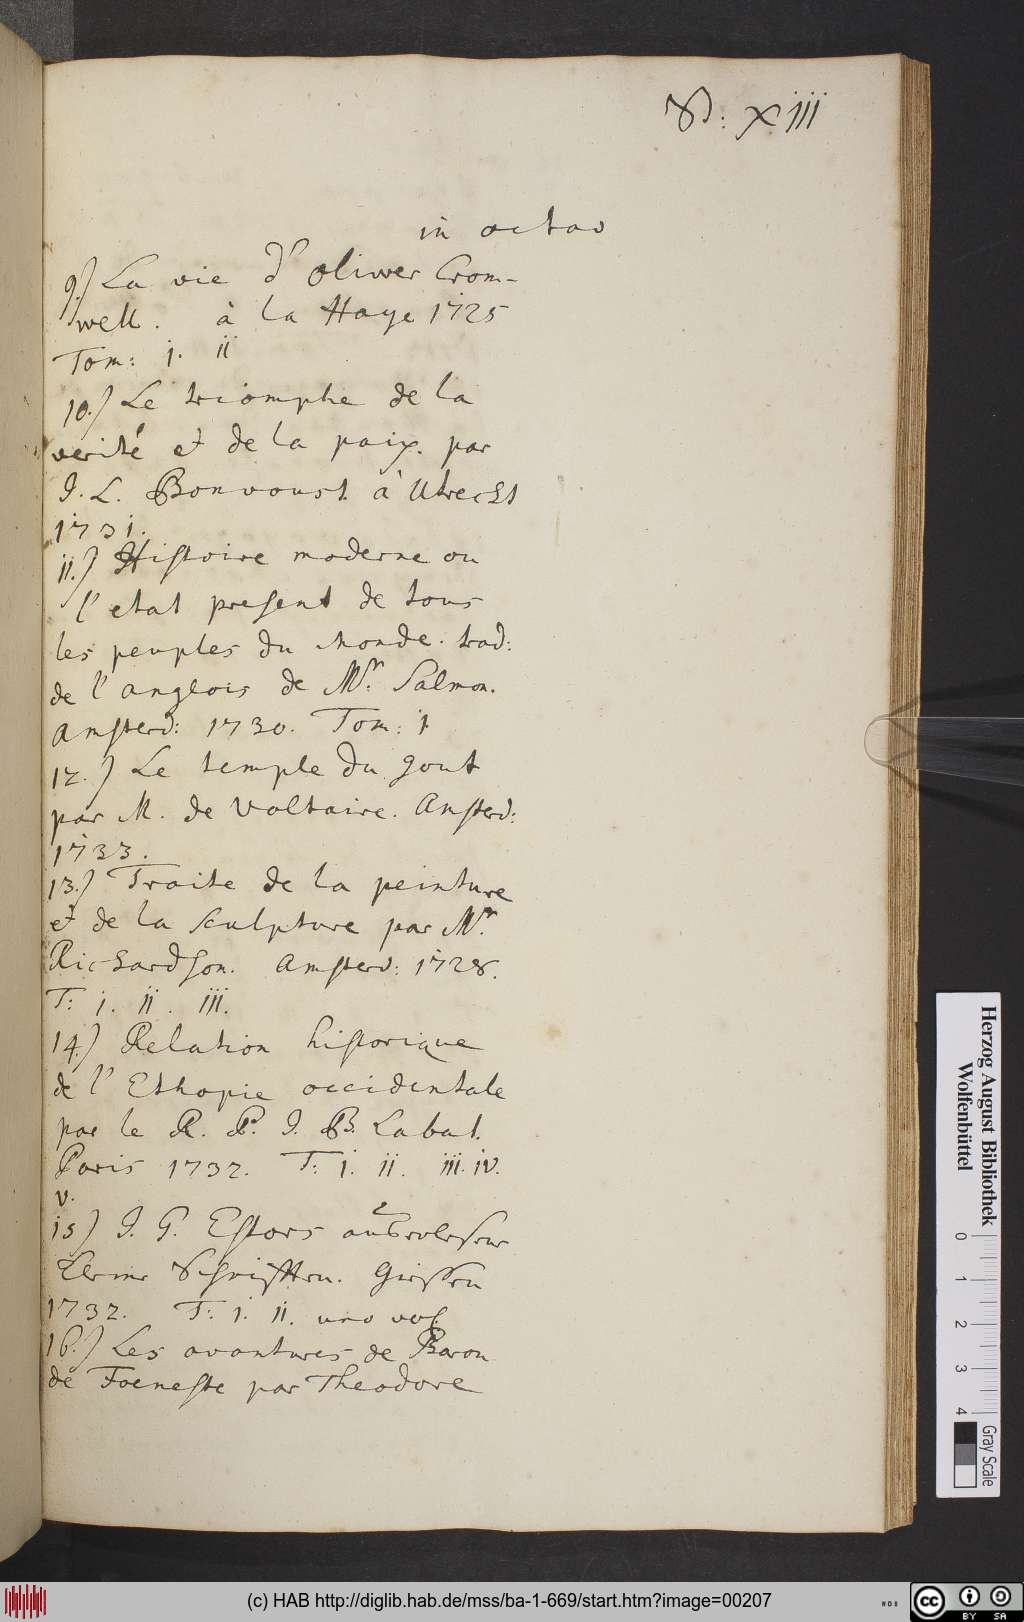 D: xiii
in octav
9.) La vie d'oliwer Crom-
well. à la Haye 1725
Tom: i. ii
10.) Le triomphe de la
verité et de la paix. par
I. L. Bonvoust. à Utrecht
1731.
ii.) Histoire moderne ou
l'etat present de tous
les peuples du monde. trad:
de l'anglois de Mr. Salmon.
Amsterd: 1730. Tom: i
12.) Le temple du gout
par M. de Voltaire. Amsterd:
1733.
13.) Traite de la peinture
et de la sculpture par Mr.
Richardson. Amsterd: 1728.
T: i. ii. iii.
14.) Relation historique
de l'Ethopie occidentale
par le R. P. I. B. Labat.
Paris 1732. T: i. ii. iii. iv.
v.
15) I. G. Estors auserlesene
kleine Schrifften. Giessen
1732. T: i. ii. uno vol.
16.) Les avantures de Baron
de Foeneste par Theodore
Herzog August Bibliothek
Wolfenbüttel
0 1 2 3 4
Gray Scale
(c) HAB http://diglib.hab.de/mss/ba-1-669/start.htm?image=00207
cc BY SA